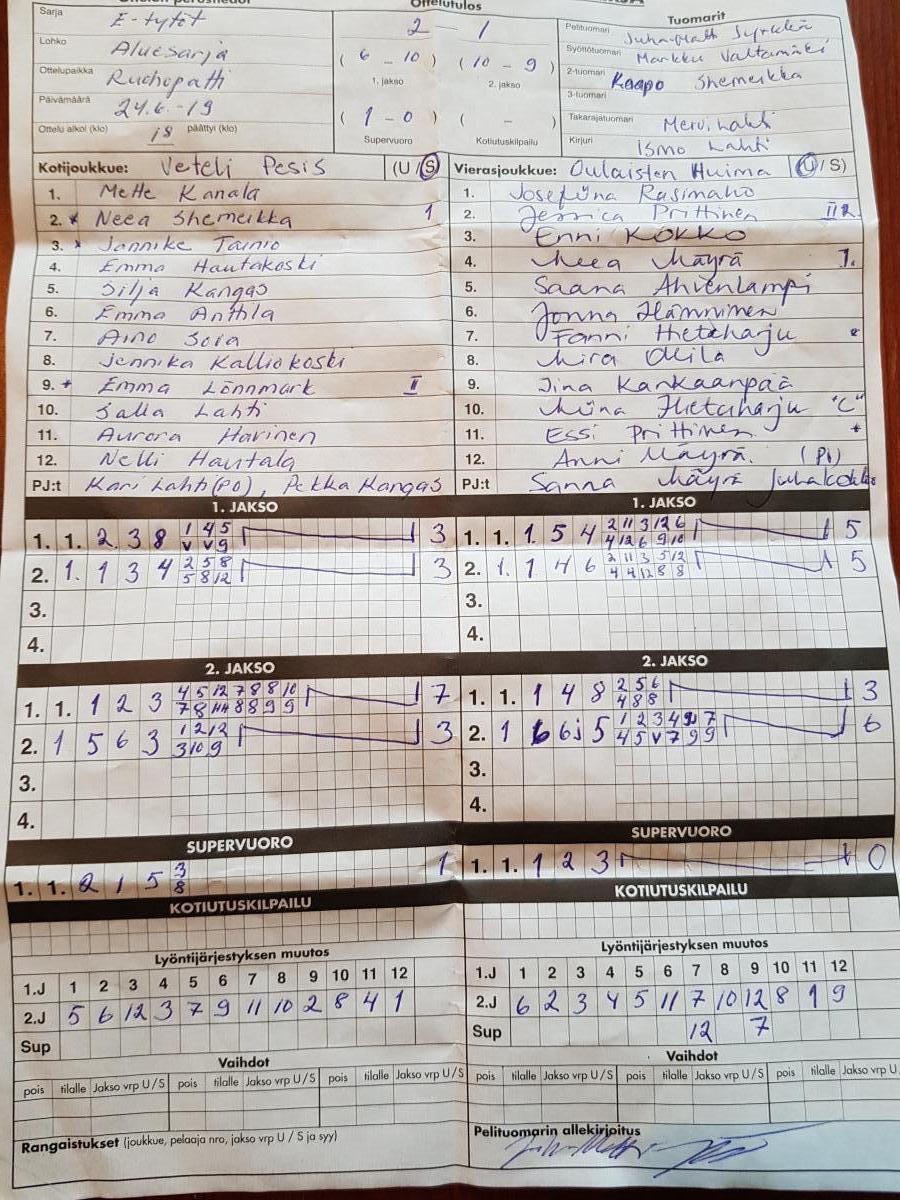 Ottelutulos
Sarja E-tytöt 2 - 1 Tuomarit
Lohko Aluesarja ( 6 - 10 ) ( 10 - 9 ) Pelituomari Juha-Matti
1. jakso 2. jakso Syöttötuomari Markku Valtamäki
Ottelupaikka 2-tuomari Kaapo Shemeikka
Päivämäärä 24.6.-19 ( 1 - 0 ) ( - ) 3-tuomari
Ottelu alkoi (klo) 18 päättyi (klo) Supervuoro Kotiutuskilpailu Takarajatuomari Mervi Lahti
Kirjuri Ismo Lahti
Kotijoukkue: Veteli Pesis (U/S) Vierasjoukkue: Oulaisten Huima (U/S)
1. Mette Kanala 1. Josefiina Rasimaho
2. * Neea Shemeikka 1 2. Jennica Prittinen II
3. * Jannike Tainio 3. Enni KOKKO
4. Emma Hautakoski 4. Neea Mäyrä I.
5. Silja Kangas 5. Saana Ahvenlampi
6. Emma Anttila 6. Jonna Hänninen
7. Aino Soia 7. Fanni Hietaharju *
8. Jennika Kalliokoski 8. Mira
9. * Emma Lönnmark II 9. Iina Kankaanpää
10. Salla Lahti 10. Niina Hietaharju "C"
11. Aurora Harinen 11. Essi Prittinen *
12. Nelli Hautala 12. Anni Mäyrä. (PI)
PJ:t Kari Lahti (PO), Pekka Kangas PJ:t Sanna Mäyrä
1. JAKSO 1. JAKSO
1. 1. 2 3 8 1 4 5 3 1. 1. 1 5 4 2 11 3 12 6 5
v v 9 4 12 6 9 10
2. 1. 1 3 4 2 5 8 3 2. 1. 1 4 6 2 11 3 5 12 5
5 8 12 4 4 12 8 8
3. 3.
4. 4.
2. JAKSO 2. JAKSO
1. 1. 1 2 3 4 5 12 7 8 8 10 7 1. 1. 1 4 8 2 5 6 3
7 8 8 8 9 9 4 8 8
2. 1 5 6 3 1 2 12 3 2. 1 6 6j 5 1 2 3 4 7 6
3 10 9 4 5 v 7 9 9
3. 3.
4. 4.
SUPERVUORO SUPERVUORO
1. 1. 2 1 5 3 1 1. 1. 1 2 3 0
8
KOTIUTUSKILPAILU KOTIUTUSKILPAILU
Lyöntijärjestyksen muutos Lyöntijärjestyksen muutos
1.J 1 2 3 4 5 6 7 8 9 10 11 12 1.J 1 2 3 4 5 6 7 8 9 10 11 12
2.J 5 6 12 3 7 9 11 10 2 8 4 1 2.J 6 2 3 4 5 11 7 10 12 8 1 9
Sup Sup 12 7
Vaihdot Vaihdot
pois tilalle Jakso vrp U/S pois tilalle Jakso vrp U/S pois tilalle Jakso vrp U/S pois tilalle Jakso vrp U/S pois tilalle Jakso vrp U/S pois tilalle Jakso vrp U
Rangaistukset (joukkue, pelaaja nro, jakso vrp U / S ja syy) Pelituomarin allekirjoitus